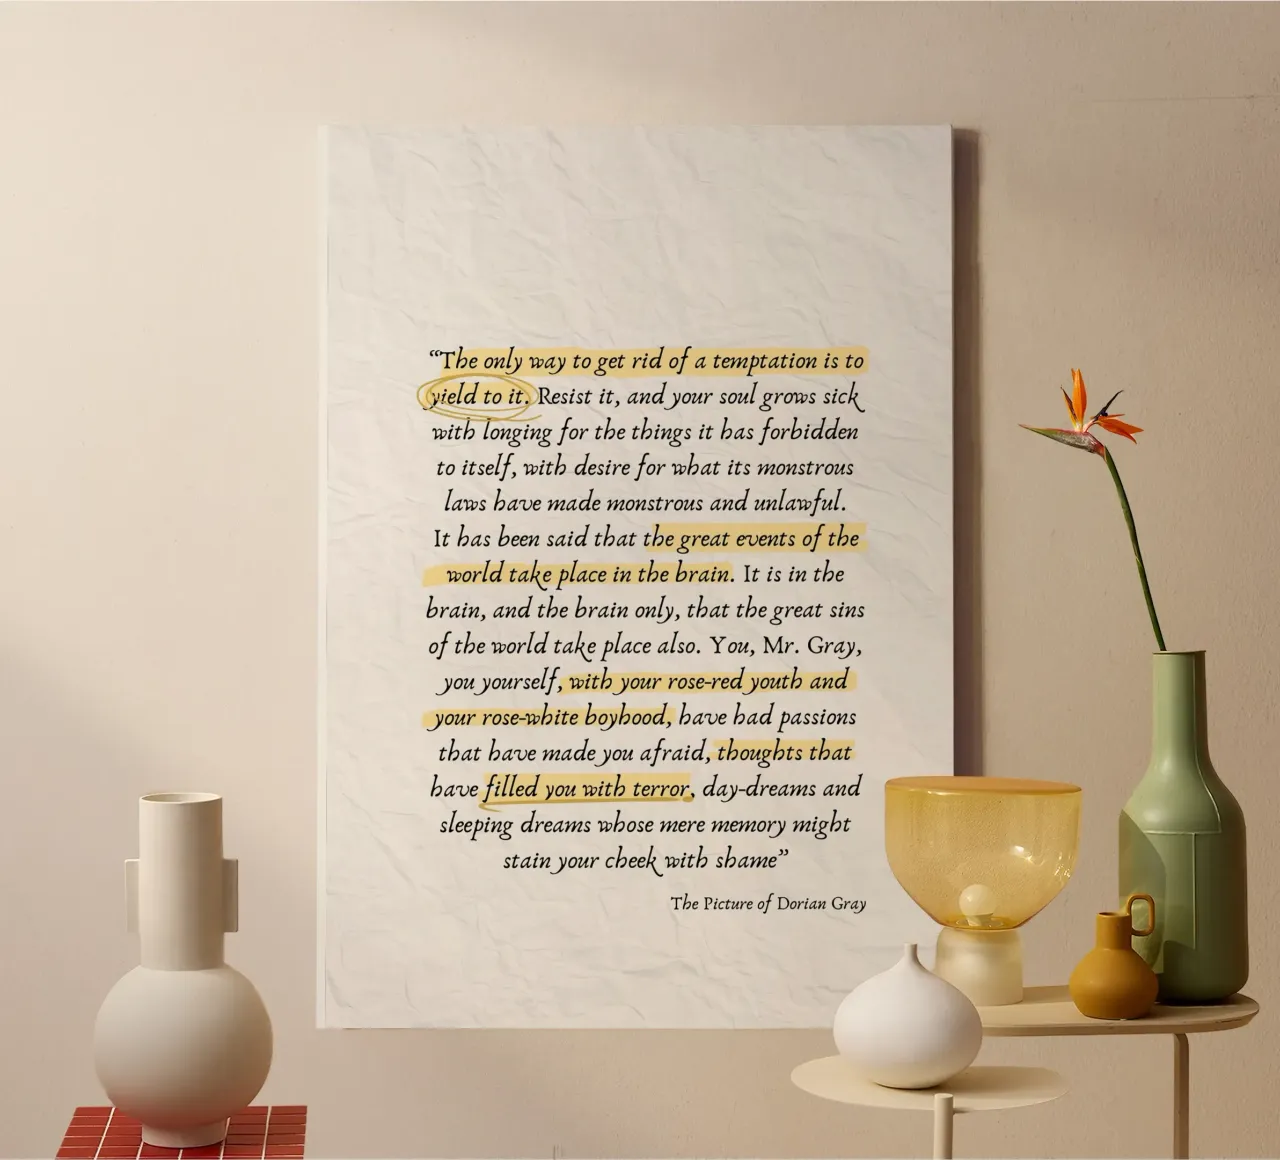 “The only way to get rid of a temptation is to
yield to it. Resist it, and your soul grows sick
with longing for the things it has forbidden
to itself, with desire for what its monstrous
laws have made monstrous and unlawful.
It has been said that the great events of the
world take place in the brain. It is in the
brain, and the brain only, that the great sins
of the world take place also. You, Mr. Gray,
you yourself, with your rose-red youth and
your rose-white boyhood, have had passions
that have made you afraid, thoughts that
have filled you with terror, day-dreams and
sleeping dreams whose mere memory might
stain your cheek with shame”
The Picture of Dorian Gray